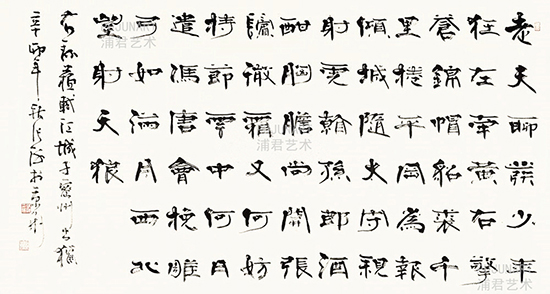 老夫聊發少年
狂左牽黃右擎
蒼錦帽貂裘千
捲平岡為報
傾城隨太守親
射虎看孫郎酒
酣胸膽尚開張
鬢微霜又何妨
持節雲中何日
遣馮唐會挽雕
弓如滿月西北
望射天狼
右錄蘇軾江城子密州出獵
辛卯年
浦君艺术
浦君艺术
浦君艺术